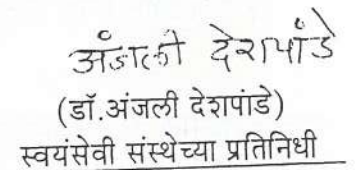 अंजली देशपांडे
(डॉ.अंजली देशपांडे)
स्वयंसेवी संस्थेच्या प्रतिनिधी